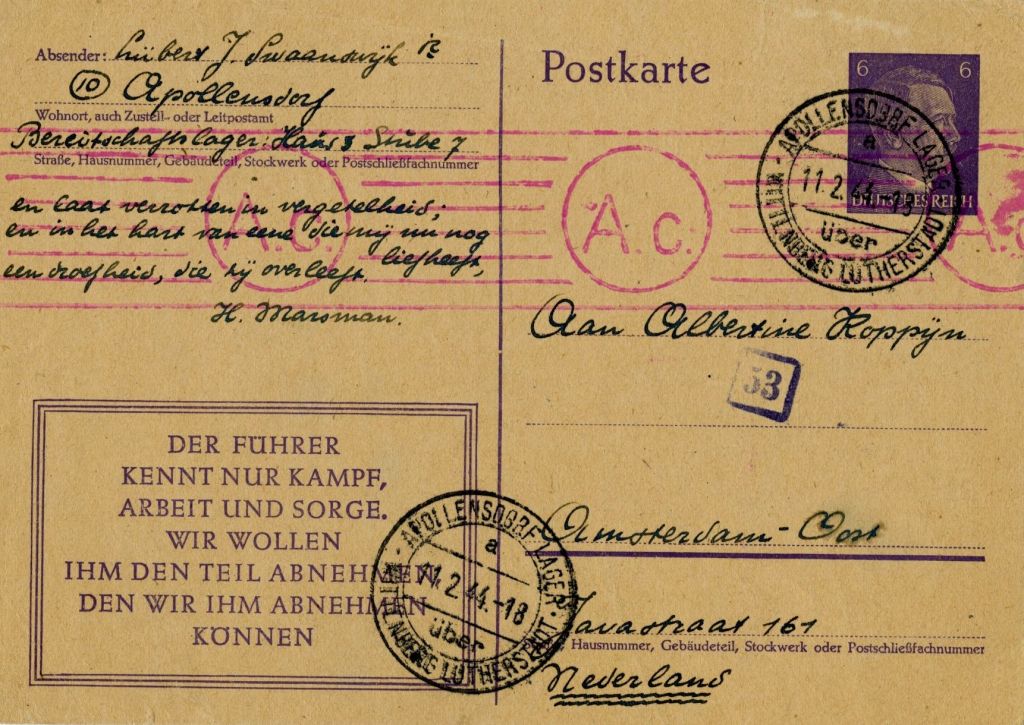 Absender: Lübert J. Swaanswijk
(10) Apollensdorf
Wohnort, auch Zustell- oder Leitpostamt
Bereitschaftslager: Haus 3 Stube 7
Straße, Hausnummer, Gebäudeteil, Stockwerk oder Postschließfachnummer
en laat verrotten in vergetelheid;
en in het hart van eene die mij nu nog
liefheeft,
een droefheid, die zij overleeft.
H. Marsman.
DER FÜHRER
KENNT NUR KAMPF,
ARBEIT UND SORGE.
WIR WOLLEN
IHM DEN TEIL ABNEHMEN
DEN WIR IHM ABNEHMEN
KÖNNEN
Postkarte
6 6
DEUTSCHES REICH
APOLLENSDORF LAGER
a
11.2.44.-18
über
WITTENBERG LUTHERSTADT
A.c.
A.c.
A.c.
Aan Albertine Koppijn
53
Amsterdam-Oost
Javastraat 161
, Hausnummer, Gebäudeteil, Stockwerk oder Postschließfachnummer
Nederland
APOLLENSDORF LAGER
a
11.2.44.-18
über
WITTENBERG LUTHERSTADT